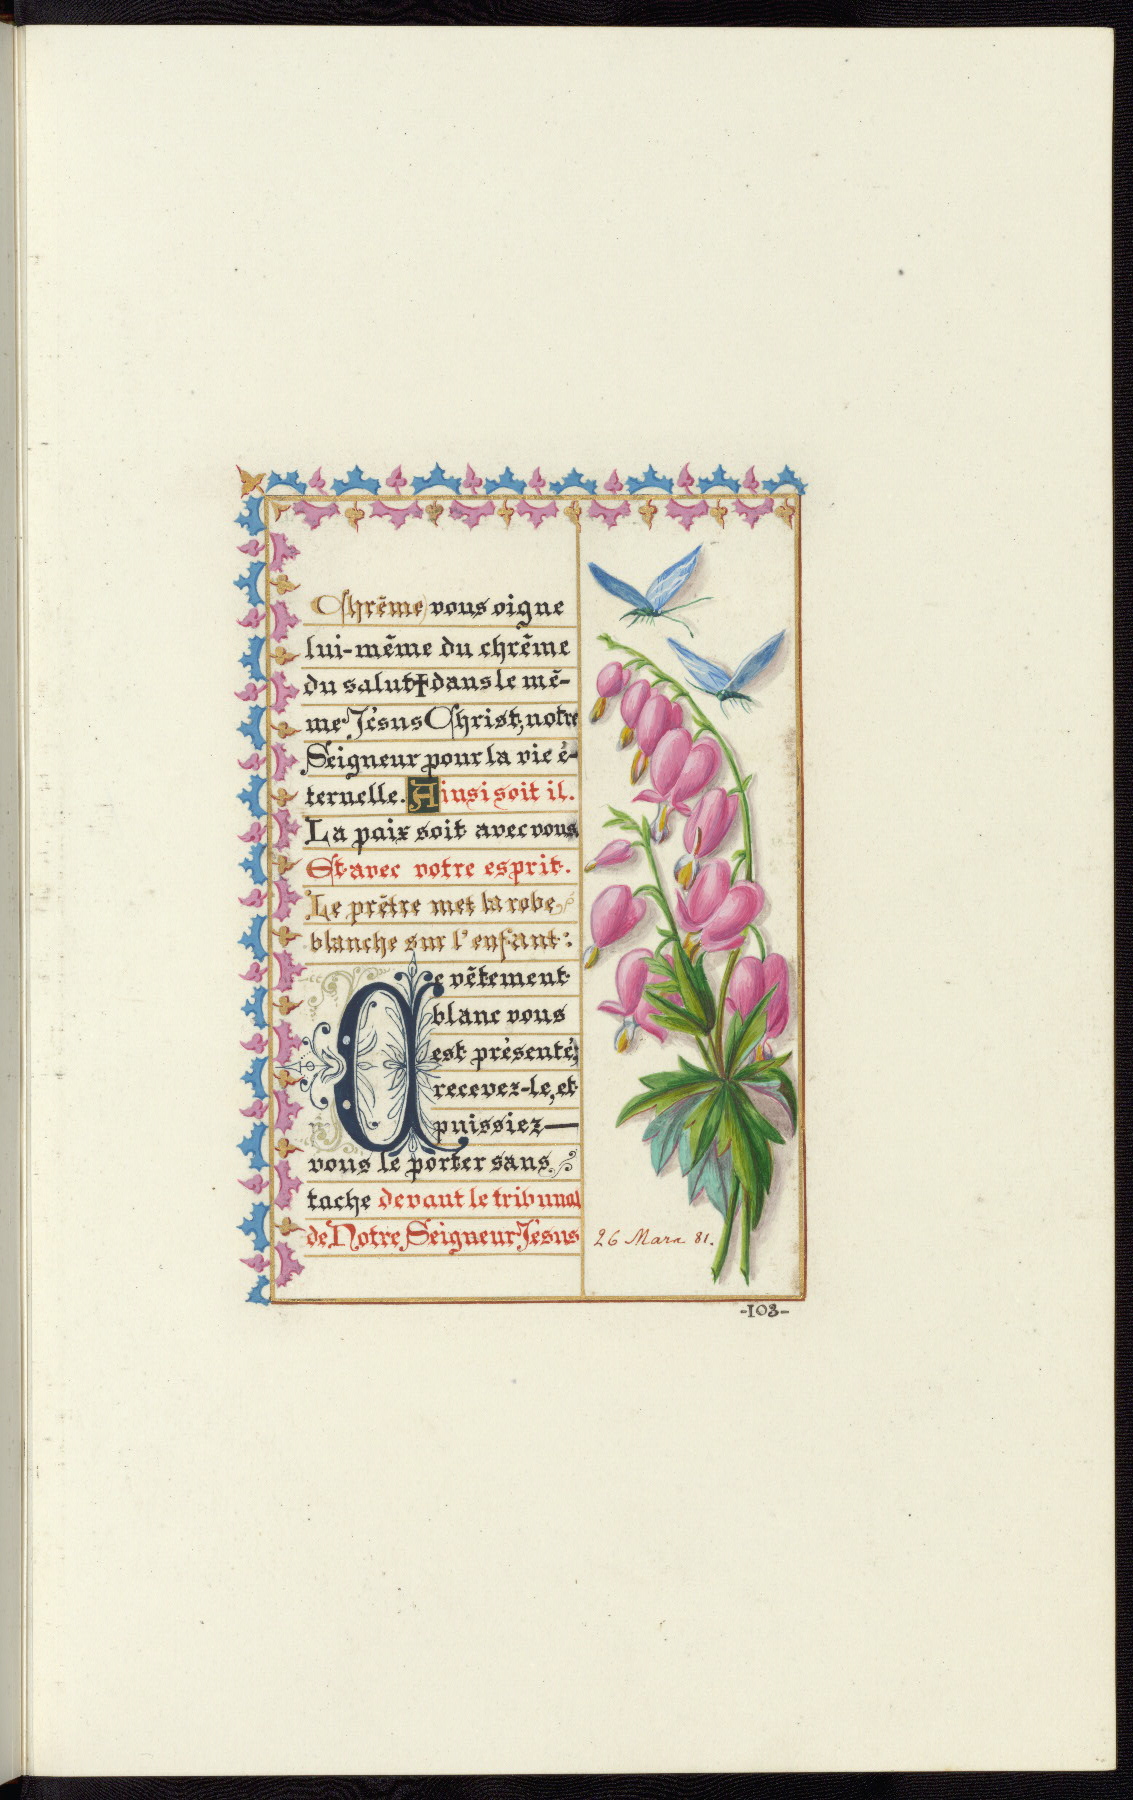 (Chrême) vous oigne
lui-même du chrême
du salut † dans le mê-
me Jésus Christ, notre
Seigneur pour la vie é-
ternelle. Ainsi soit il.
La paix soit avec vous
Et avec votre esprit.
Le prêtre met la robe
blanche sur l'enfant:
Ce vêtement
blanc vous
est présenté;
recevez-le, et
puissiez—
vous le porter sans
tache devant le tribunal
de Notre Seigneur Jésus
26 Mars 81.
-103-